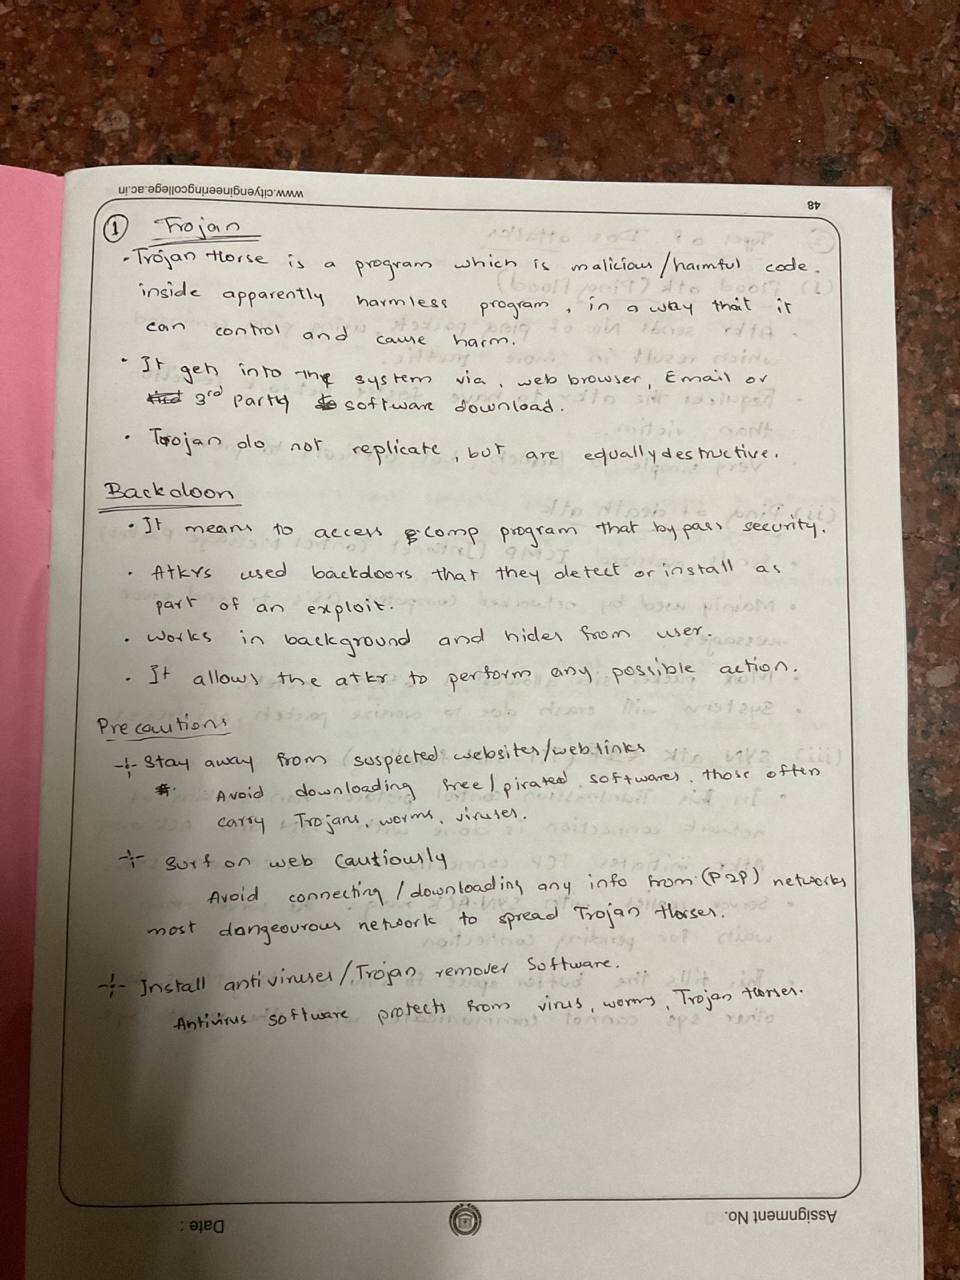 www.cityengineeringcollege.ac.in
48
1 Trojan
• Trojan Horse is a program which is malicious/harmful code.
inside apparently harmless program, in a way that it
can control and cause harm.
• It gets into the system via, web browser, Email or
3rd party software download.
• Trojan do not replicate, but are equally destructive.
Backdoor
• It means to access comp program that bypass security.
• Atkrs used backdoors that they detect or install as
part of an exploit.
• Works in background and hides from user.
• It allows the atkr to perform any possible action.
Precautions
Stay away from suspected websites/weblinks
Avoid downloading free/pirated softwares. those often
carry Trojans, worms, viruses.
Surf on web cautiously
Avoid connecting/downloading any info from (P2P) networks
most dangeourous network to spread Trojan Horses.
Install antiviruses/Trojan remover Software.
Antivirus software protects from virus, worms, Trojan Horses.
Assignment No.
Date :